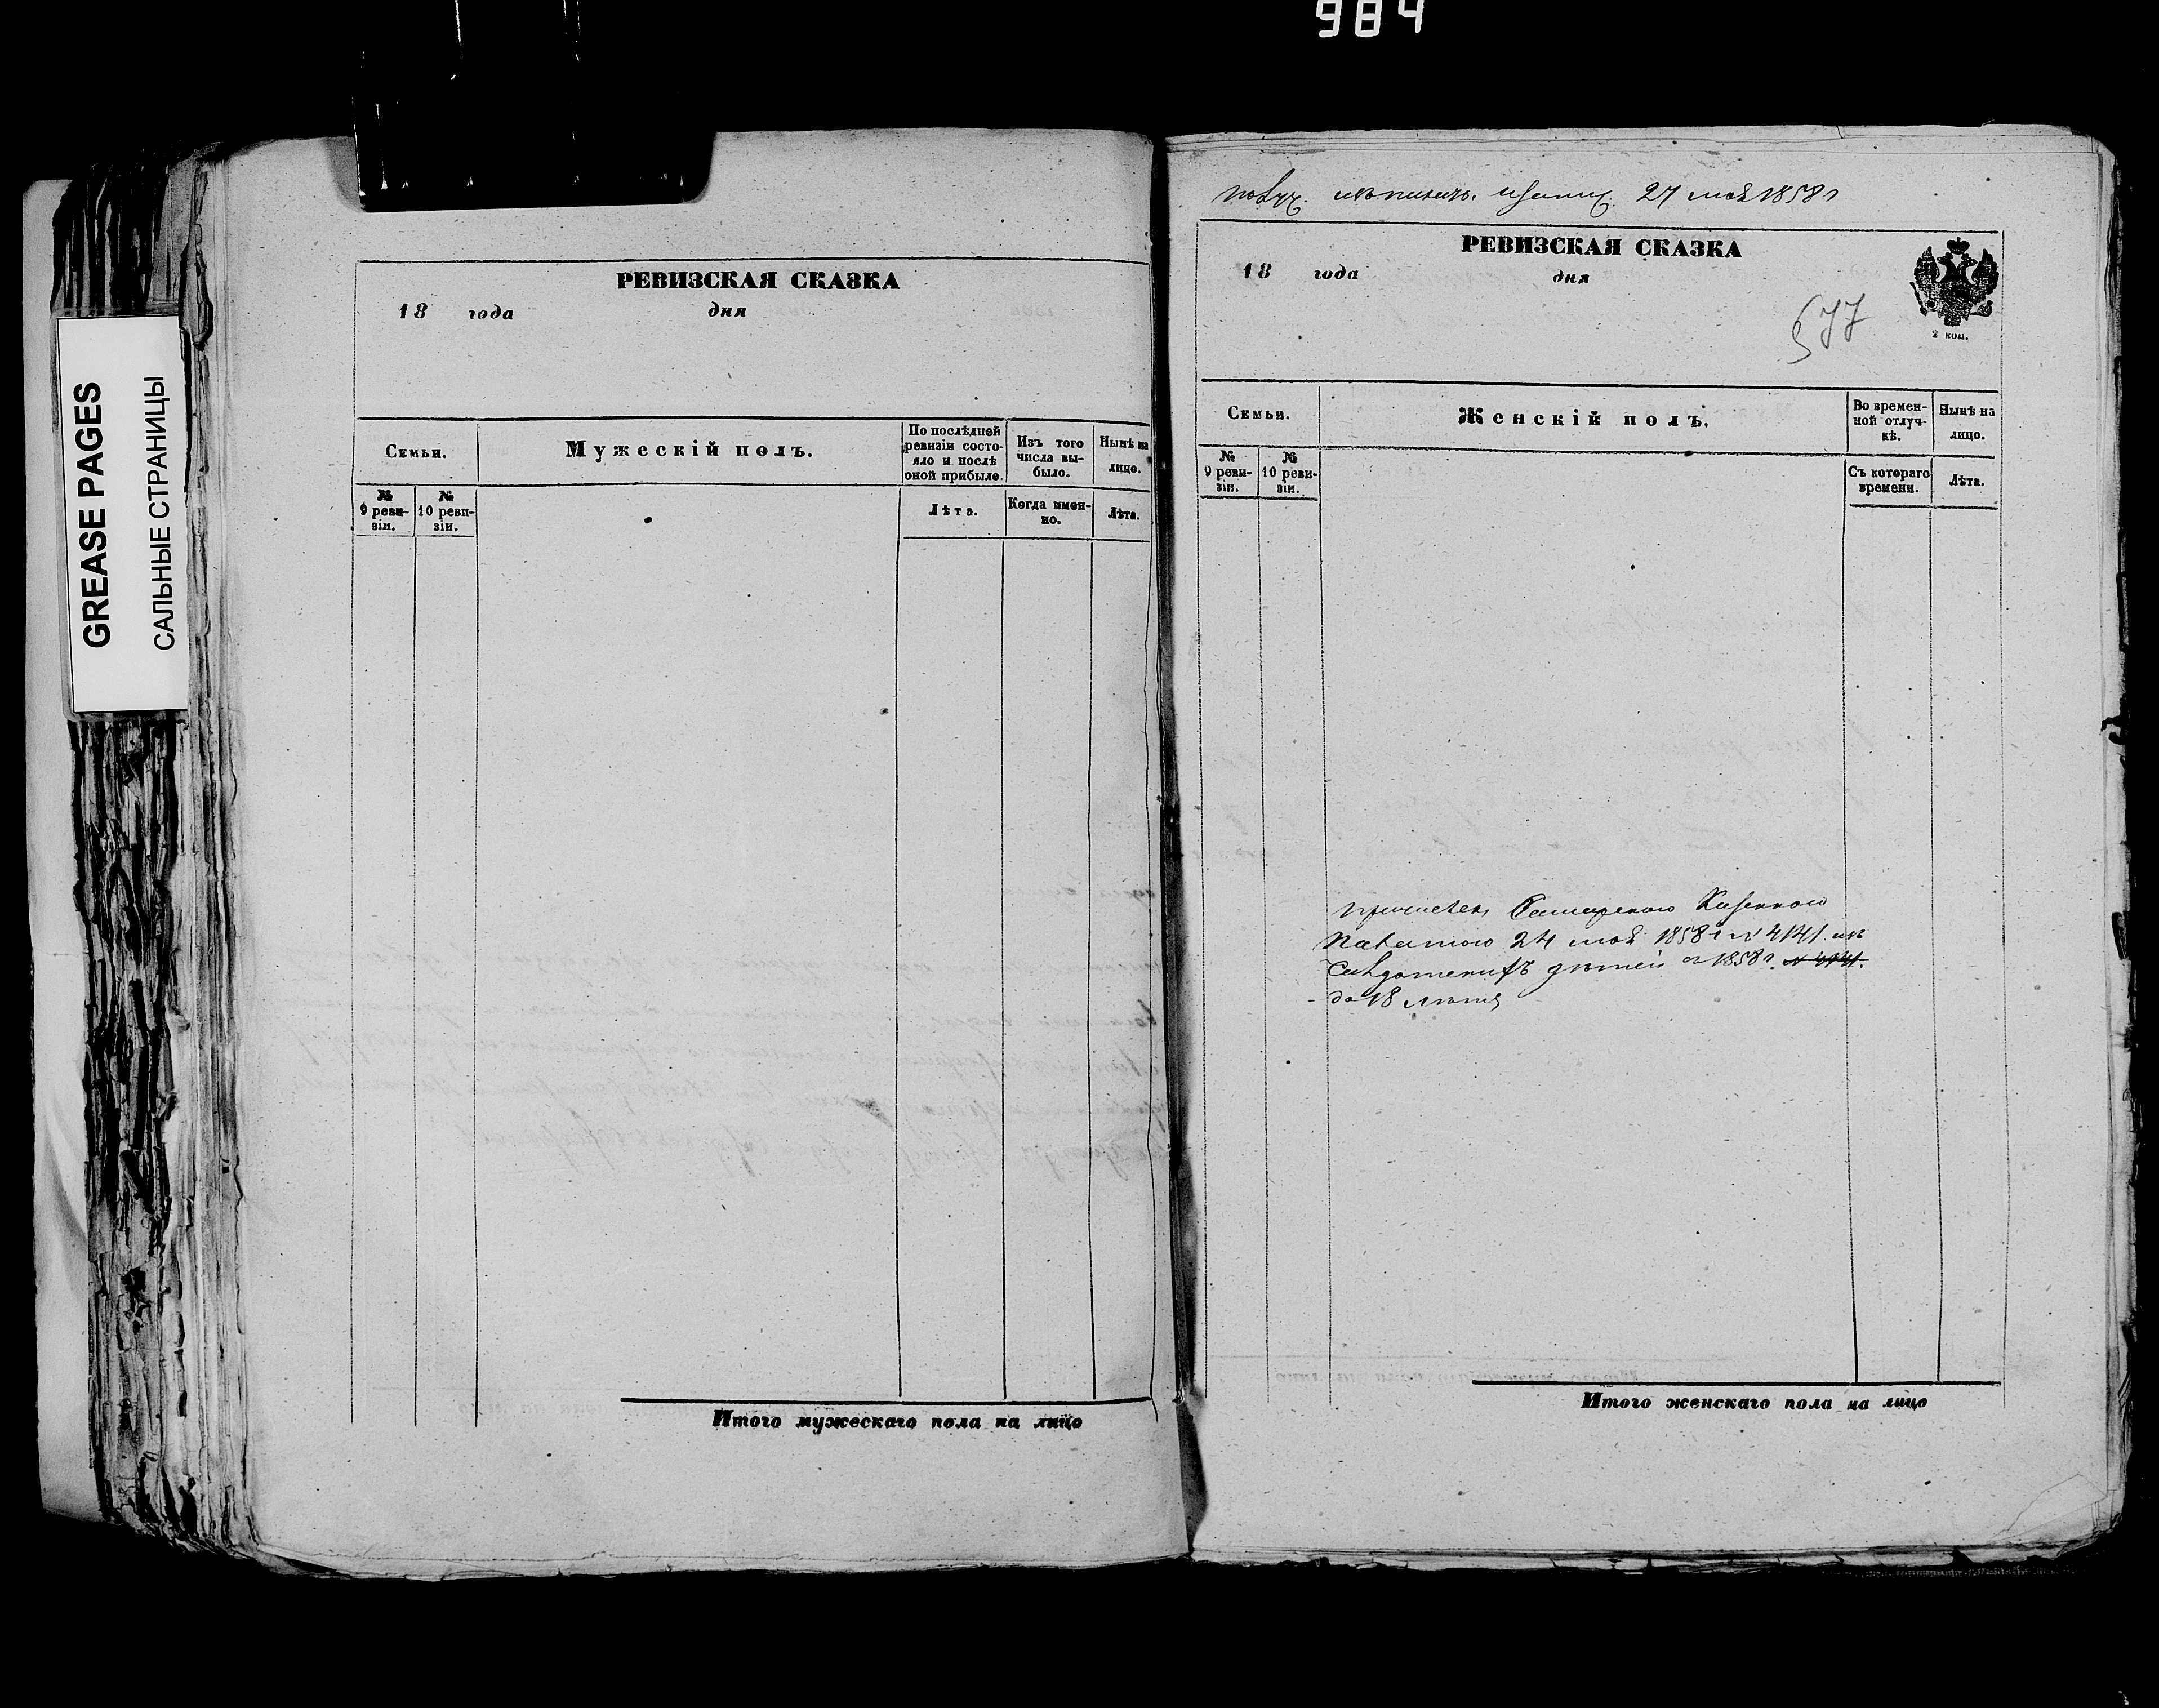 984
GREASE PAGES
САЛЬНЫЕ СТРАНИЦЫ
РЕВИЗСКАЯ СКАЗКА
18 года дня
Семьи.
Мужескій полъ.
По послѣдней ревизіи состо-
яло и послѣ оной прибыло.
Изъ того числа вы-
было.
Нынѣ на лицо.
№ 9 реви-
зіи.
№ 10 реви-
зіи.
Лѣта.
Когда имен-
но.
Лѣта.
Итого мужескаго пола на лицо
27 мая 1858 г
РЕВИЗСКАЯ СКАЗКА
18 года дня
577
2 коп.
Семьи.
Женскій полъ.
Во времен-
ной отлуч-
кѣ.
Нынѣ на
лицо.
№
9 реви-
зіи.
№
10 реви-
зіи.
Съ котораго
времени.
Лѣта.
Самарскою Казенною
Палатою 24 мая 1858 г № 4141
1858 г. № 4141.
до 18
Итого женскаго пола на лицо